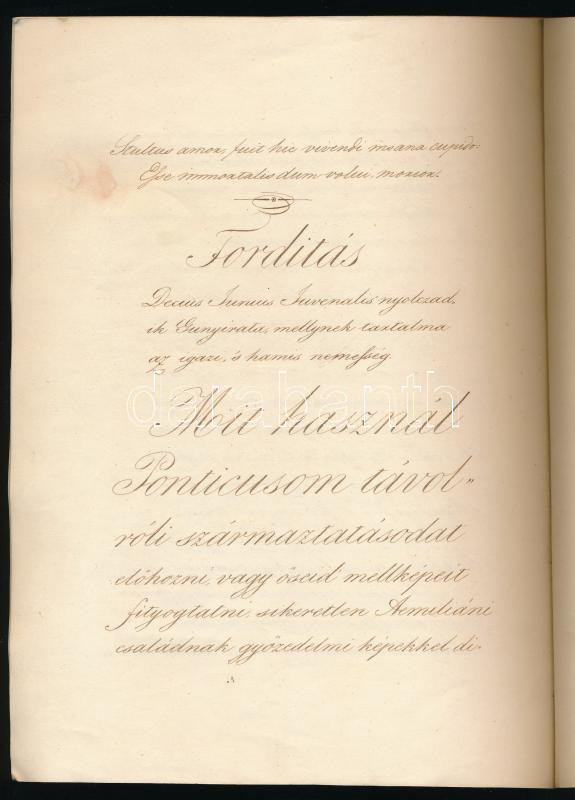 Stultus amor, fuit hic vivendi insana cupido:
Esse immortalis dum volui, morior.
Fordítás
Decius Junius Juvenalis nyolczad,
ik Gunyirata, mellynek tartalma
az igazi, 's hamis nemesség.
darabanth
Mit használ
Ponticusom távol„
róli származtatásodat
előhozni, vagy őseid mellképeit
fityogtatni, sikeretlen Aemiliáni
családnak győzedelmi képekkel di„